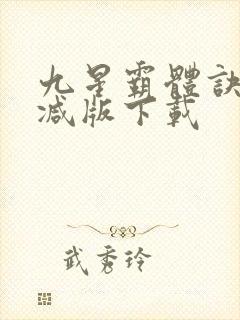 九星霸體訣
减版下載
武秀玲